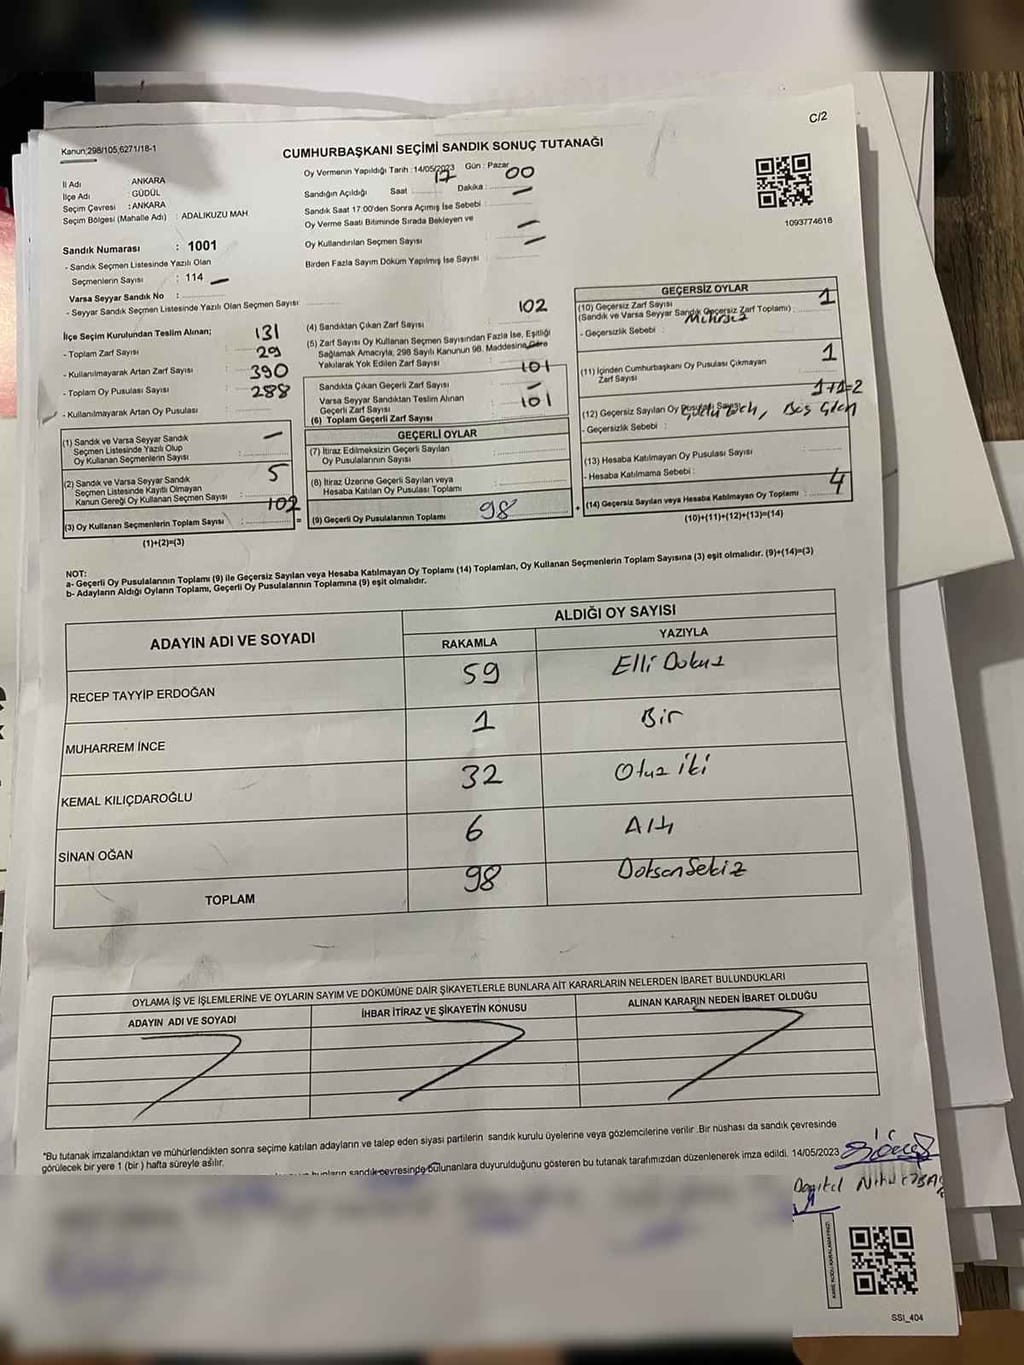 C/2
Kanun;298/105,6271/18-1
CUMHURBAŞKANI SEÇİMİ SANDIK SONUÇ TUTANAĞI
İl Adı ANKARA
İlçe Adı : GÜDÜL
Seçim Çevresi : ANKARA
Seçim Bölgesi (Mahalle Adı) : ADALIKUZU MAH.
Sandık Numarası : 1001
- Sandık Seçmen Listesinde Yazılı Olan
Seçmenlerin Sayısı : 114
Varsa Seyyar Sandık No :
- Seyyar Sandık Seçmen Listesinde Yazılı Olan Seçmen Sayısı
Oy Vermenin Yapıldığı Tarih :14/05/2023 Gün : Pazar
Sandığın Açıldığı Saat 17 Dakika : 00
Sandık Saat 17:00'den Sonra Açımış İse Sebebi :
Oy Verme Saati Bitiminde Sırada Bekleyen ve
Oy Kullandırılan Seçmen Sayısı
Birden Fazla Sayım Döküm Yapılmış İse Sayısı
1093774618
İlçe Seçim Kurulundan Teslim Alınan;
- Toplam Zarf Sayısı 131
- Kullanılmayarak Artan Zarf Sayısı 29
- Toplam Oy Pusulası Sayısı 390
- Kullanılmayarak Artan Oy Pusulası 288
(1) Sandık ve Varsa Seyyar Sandık
Seçmen Listesinde Yazılı Olup
Oy Kullanan Seçmenlerin Sayısı
(2) Sandık ve Varsa Seyyar Sandık
Seçmen Listesinde Kayıtlı Olmayan
Kanun Gereği Oy Kullanan Seçmen Sayısı : 5
(3) Oy Kullanan Seçmenlerin Toplam Sayısı 102
(1)+(2)=(3)
=
(4) Sandıktan Çıkan Zarf Sayısı 102
(5) Zarf Sayısı Oy Kullanan Seçmen Sayısından Fazla İse, Eşitliği
Sağlamak Amacıyla, 298 Sayılı Kanunun 98. Maddesine Göre
Yakılarak Yok Edilen Zarf Sayısı
Sandıkta Çıkan Geçerli Zarf Sayısı 101
Varsa Seyyar Sandıktan Teslim Alınan
Geçerli Zarf Sayısı
(6) Toplam Geçerli Zarf Sayısı 101
GEÇERLİ OYLAR
(7) İtiraz Edilmeksizin Geçerli Sayılan
Oy Pusulalarının Sayısı
(8) İtiraz Üzerine Geçerli Sayılan veya
Hesaba Katılan Oy Pusulası Toplamı
(9) Geçerli Oy Pusulalarının Toplamı 98
+
GEÇERSİZ OYLAR
(10) Geçersiz Zarf Sayısı
(Sandık ve Varsa Seyyar Sandık Geçersiz Zarf Toplamı) : 1
- Geçersizlik Sebebi : Mühürsüz
(11) İçinden Cumhurbaşkanı Oy Pusulası Çıkmayan
Zarf Sayısı 1
(12) Geçersiz Sayılan Oy Pusulası Sayısı 1+1=2
- Geçersizlik Sebebi :
(13) Hesaba Katılmayan Oy Pusulası Sayısı
- Hesaba Katılmama Sebebi :
(14) Geçersiz Sayılan veya Hesaba Katılmayan Oy Toplamı 4
(10)+(11)+(12)+(13)=(14)
NOT:
a- Geçerli Oy Pusulalarının Toplamı (9) ile Geçersiz Sayılan veya Hesaba Katılmayan Oy Toplamı (14) Toplamları, Oy Kullanan Seçmenlerin Toplam Sayısına (3) eşit olmalıdır. (9)+(14)=(3)
b- Adayların Aldığı Oyların Toplamı, Geçerli Oy Pusulalarının Toplamına (9) eşit olmalıdır.
ADAYIN ADI VE SOYADI ALDIĞI OY SAYISI
RAKAMLA YAZIYLA
RECEP TAYYİP ERDOĞAN 59 Elli Dokuz
MUHARREM İNCE 1 Bir
KEMAL KILIÇDAROĞLU 32 Otuz iki
SİNAN OĞAN 6 Altı
TOPLAM 98 Doksan Sekiz
OYLAMA İŞ VE İŞLEMLERİNE VE OYLARIN SAYIM VE DÖKÜMÜNE DAİR ŞİKAYETLERLE BUNLARA AİT KARARLARIN NELERDEN İBARET BULUNDUKLARI
ADAYIN ADI VE SOYADI İHBAR İTİRAZ VE ŞİKAYETİN KONUSU ALINAN KARARIN NEDEN İBARET OLDUĞU
*Bu tutanak imzalandıktan ve mühürlendikten sonra seçime katılan adayların ve talep eden siyasi partilerin sandık kurulu üyelerine veya gözlemcilerine verilir .Bir nüshası da sandık çevresinde
görülecek bir yere 1 (bir ) hafta süreyle asılır.
bunların sandık çevresinde bulunanlara duyurulduğunu gösteren bu tutanak tarafımızdan düzenlenerek imza edildi. 14/05/2023
SSİ_404